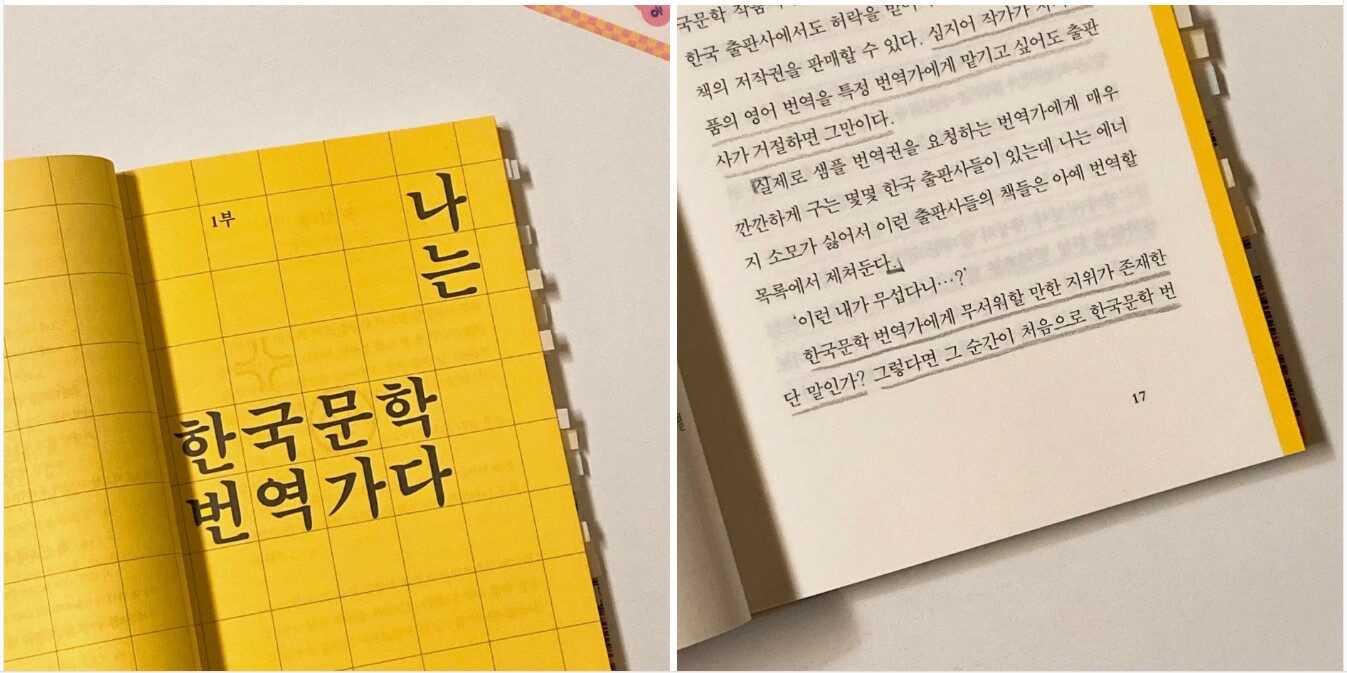 1부
나
는
한국문학
번역가다
국문학 작품
한국 출판사에서도 허락을 받아
책의 저작권을 판매할 수 있다. 심지어 작가가
품의 영어 번역을 특정 번역가에게 맡기고 싶어도 출판
사가 거절하면 그만이다.
실제로 샘플 번역권을 요청하는 번역가에게 매우
깐깐하게 구는 몇몇 한국 출판사들이 있는데 나는 에너
지 소모가 싫어서 이런 출판사들의 책들은 아예 번역할
목록에서 제쳐둔다.
‘이런 내가 무섭다니…?’
한국문학 번역가에게 무서워할 만한 지위가 존재한
단 말인가? 그렇다면 그 순간이 처음으로 한국문학 번
17